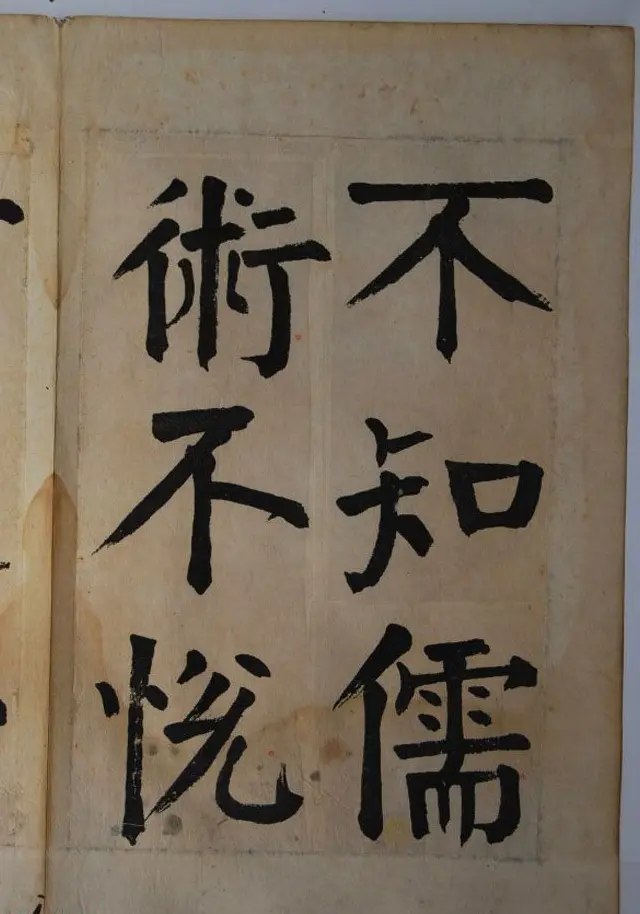 不知儒
術不悦